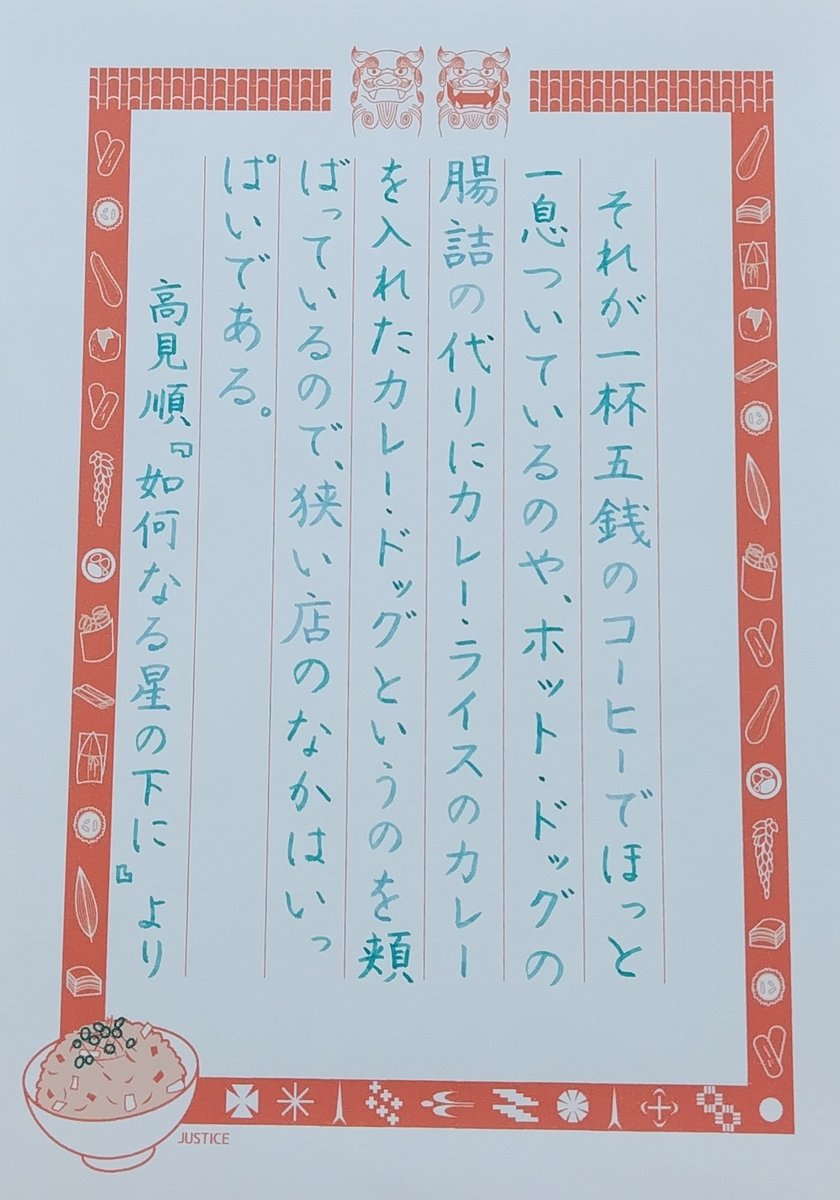 それが一杯五銭のコーヒーでほっと
一息ついているのや、ホット・ドッグの
腸詰の代りにカレー・ライスのカレー
を入れたカレー・ドッグというのを頬
ばっているので、狭い店のなかはいっ
ぱいである。
高見順『如何なる星の下に』より
JUSTICE